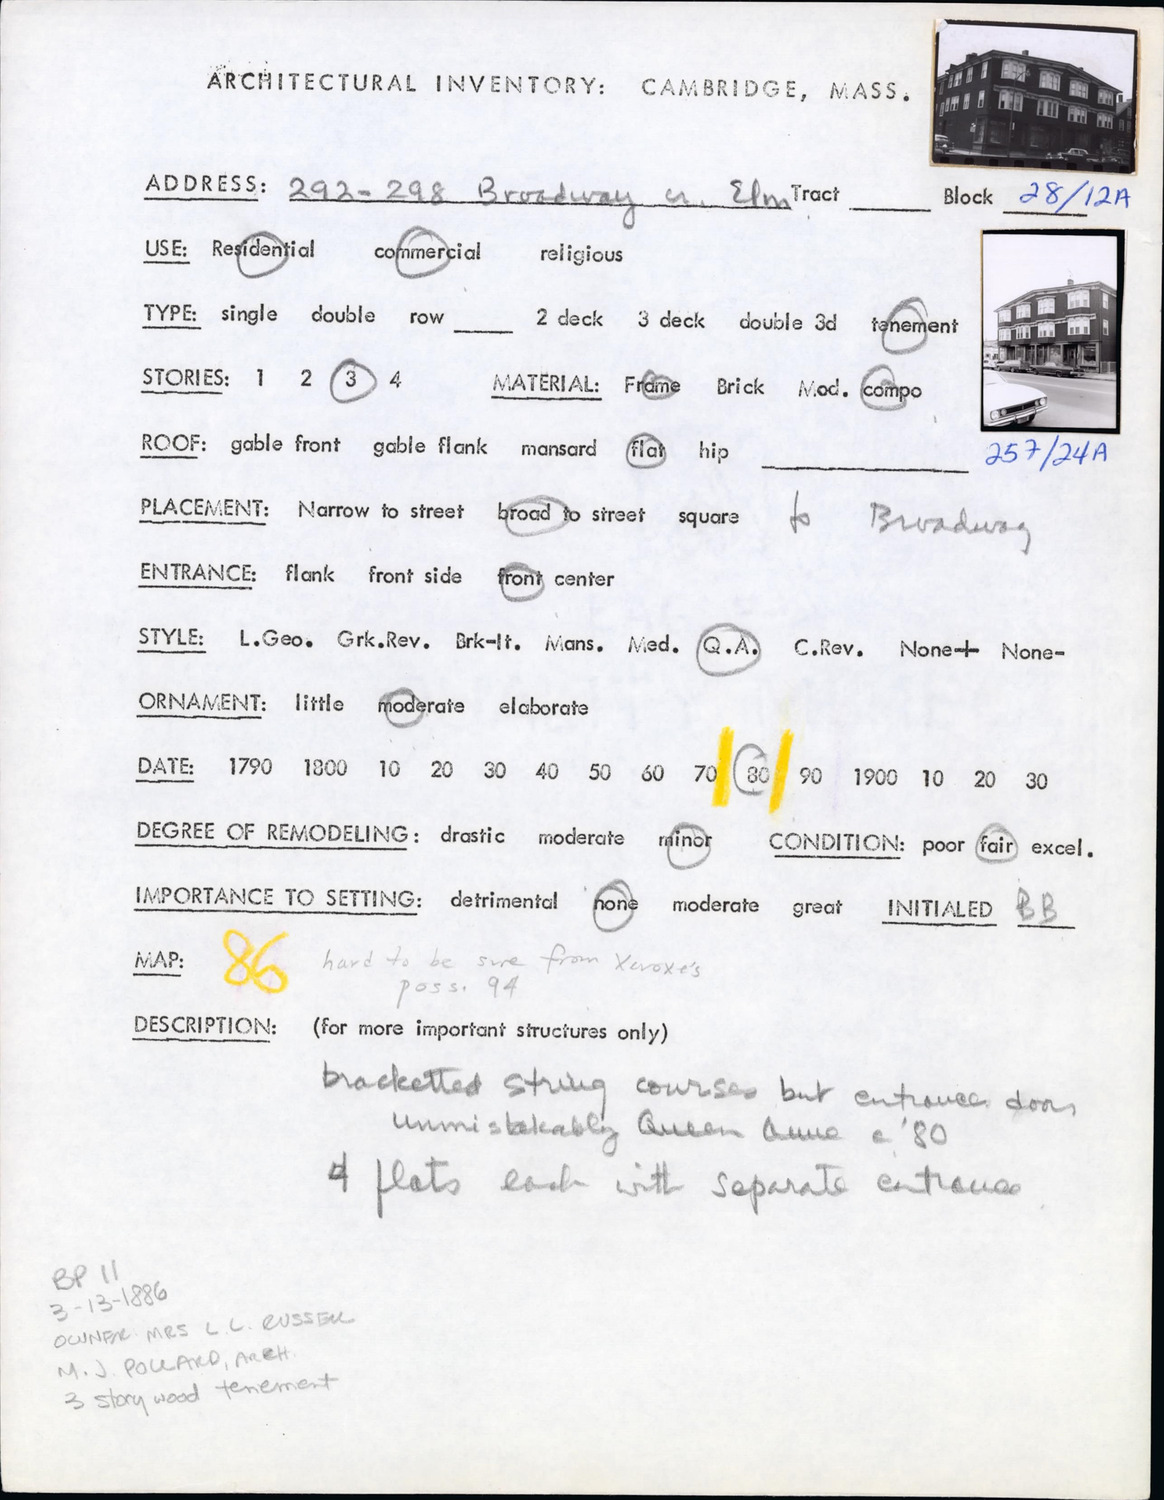 ARCHITECTURAL INVENTORY: CAMBRIDGE, MASS.
ADDRESS: 292-298 Broadway cr. Elm Tract ____ Block 28/12A
USE: Residential commercial religious
TYPE: single double row ____ 2 deck 3 deck double 3d tenement
STORIES: 1 2 3 4 MATERIAL: Frame Brick Mod. compo
257/24A
ROOF: gable front gable flank mansard flat hip ____
PLACEMENT: Narrow to street broad to street square to Broadway
ENTRANCE: flank front side front center
STYLE: L.Geo. Grk.Rev. Brk-It. Mans. Med. Q.A. C.Rev. None+ None-
ORNAMENT: little moderate elaborate
DATE: 1790 1800 10 20 30 40 50 60 70 80 90 1900 10 20 30
DEGREE OF REMODELING: drastic moderate minor CONDITION: poor fair excel.
IMPORTANCE TO SETTING: detrimental none moderate great INITIALED BB
MAP: 86 hard to be sure from Xeroxe's
poss. 94
DESCRIPTION: (for more important structures only)
bracketted string courses but entrance doors
unmistakably Queen Anne c '80
4 flats each with separate entrance
BP 11
3-13-1886
OWNER MRS L.L. RUSSELL
M.J. POLLARD, ARCH.
3 story wood tenement